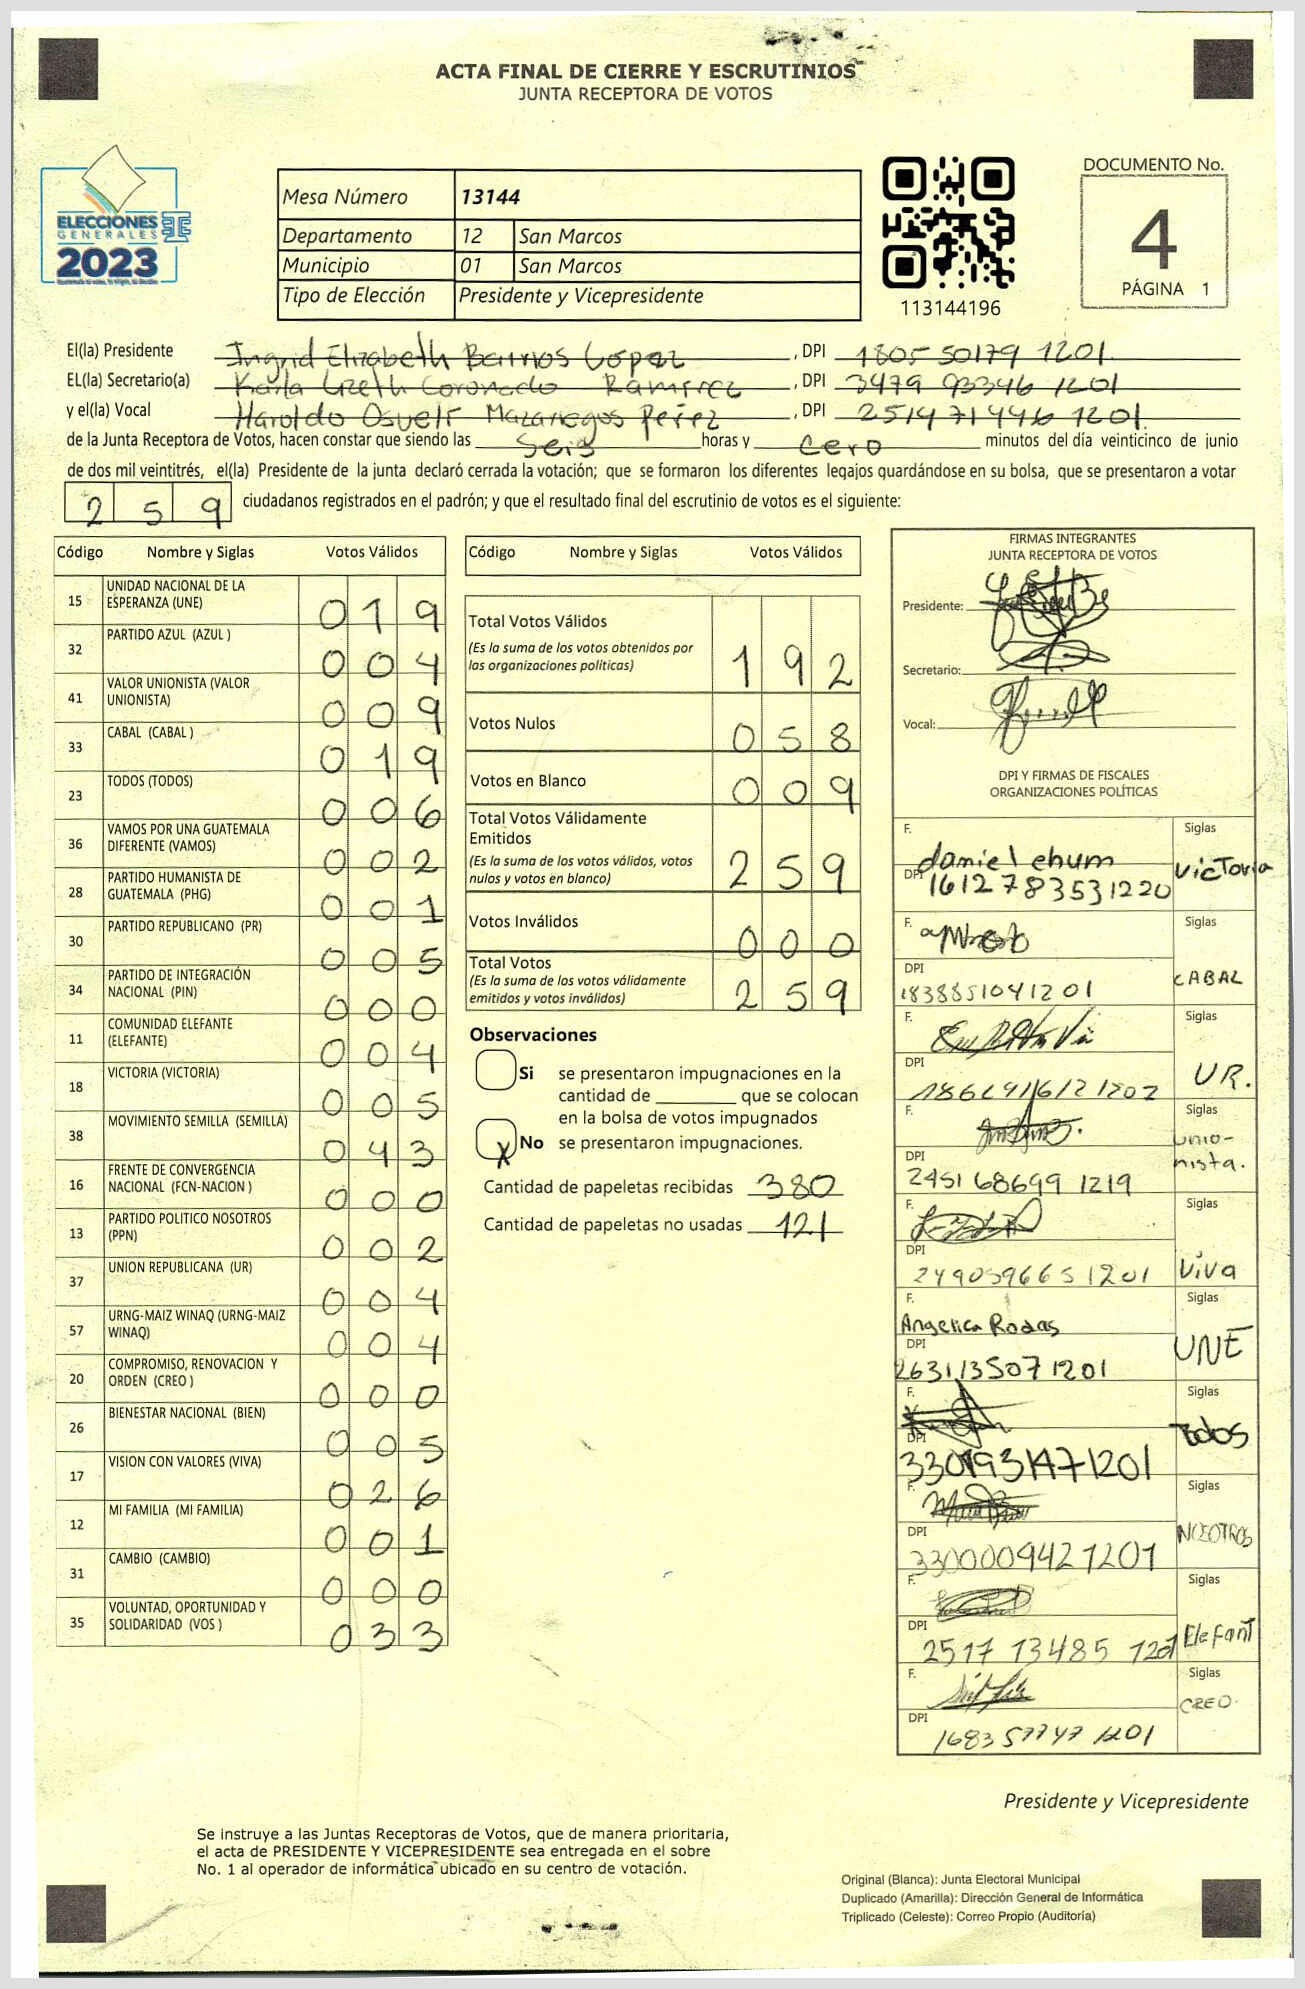 ACTA FINAL DE CIERRE Y ESCRUTINIOS
JUNTA RECEPTORA DE VOTOS
ELECCIONES
GENERALES
2023
Mesa Número 13144
Departamento 12 San Marcos
Municipio 01 San Marcos
Tipo de Elección Presidente y Vicepresidente
113144196
DOCUMENTO No.
4
PÁGINA 1
El(la) Presidente Ingrid Elizabeth Barrios López, DPI 1805 50179 1201
EL(la) Secretario(a) Karla Lizeth Coronado Ramírez, DPI 3479 93346 1201
y el(la) Vocal Haroldo Osveli Mazariegos Pérez, DPI 2514 71446 1201
de la Junta Receptora de Votos, hacen constar que siendo las Seis horas y cero minutos del día veinticinco de junio
de dos mil veintitrés, el(la) Presidente de la junta declaró cerrada la votación; que se formaron los diferentes legajos guardándose en su bolsa, que se presentaron a votar
2 5 9 ciudadanos registrados en el padrón; y que el resultado final del escrutinio de votos es el siguiente:
Código Nombre y Siglas Votos Válidos
15 UNIDAD NACIONAL DE LA ESPERANZA (UNE) 0 1 9
32 PARTIDO AZUL (AZUL ) 0 0 4
41 VALOR UNIONISTA (VALOR UNIONISTA) 0 0 9
33 CABAL (CABAL ) 0 1 9
23 TODOS (TODOS) 0 0 6
36 VAMOS POR UNA GUATEMALA DIFERENTE (VAMOS) 0 0 2
28 PARTIDO HUMANISTA DE GUATEMALA (PHG) 0 0 1
30 PARTIDO REPUBLICANO (PR) 0 0 5
34 PARTIDO DE INTEGRACIÓN NACIONAL (PIN) 0 0 0
11 COMUNIDAD ELEFANTE (ELEFANTE) 0 0 4
18 VICTORIA (VICTORIA) 0 0 5
38 MOVIMIENTO SEMILLA (SEMILLA) 0 4 3
16 FRENTE DE CONVERGENCIA NACIONAL (FCN-NACION ) 0 0 0
13 PARTIDO POLITICO NOSOTROS (PPN) 0 0 2
37 UNION REPUBLICANA (UR) 0 0 4
57 URNG-MAIZ WINAQ (URNG-MAIZ WINAQ) 0 0 4
20 COMPROMISO, RENOVACION Y ORDEN (CREO ) 0 0 0
26 BIENESTAR NACIONAL (BIEN) 0 0 5
17 VISION CON VALORES (VIVA) 0 2 6
12 MI FAMILIA (MI FAMILIA) 0 0 1
31 CAMBIO (CAMBIO) 0 0 0
35 VOLUNTAD, OPORTUNIDAD Y SOLIDARIDAD (VOS ) 0 3 3
Código Nombre y Siglas Votos Válidos
Total Votos Válidos
(Es la suma de los votos obtenidos por
las organizaciones políticas) 1 9 2
Votos Nulos 0 5 8
Votos en Blanco 0 0 9
Total Votos Válidamente
Emitidos
(Es la suma de los votos válidos, votos
nulos y votos en blanco) 2 5 9
Votos Inválidos 0 0 0
Total Votos
(Es la suma de los votos válidamente
emitidos y votos inválidos) 2 5 9
Observaciones
Si se presentaron impugnaciones en la
cantidad de ________ que se colocan
en la bolsa de votos impugnados
X No se presentaron impugnaciones.
Cantidad de papeletas recibidas 380
Cantidad de papeletas no usadas 121
FIRMAS INTEGRANTES
JUNTA RECEPTORA DE VOTOS
Presidente:
Secretario:
Vocal:
DPI Y FIRMAS DE FISCALES
ORGANIZACIONES POLÍTICAS
F. daniel chum Siglas
DPI 1612783531220 Victoria
F. Siglas
DPI 1838851041201 CABAL
F. Siglas
DPI UR.
F. Siglas
DPI 2451 68699 1219 Unionista.
F. Siglas
DPI 2490596651201 Viva
F. Angelica Rodas Siglas
DPI 2631135071201 UNE
F. Siglas
DPI Todos
F. Siglas
DPI 3300009421201 NOSOTROS
F. Siglas
DPI 2517 13485 1201 Elefant
F. Siglas
DPI 1683 57747 1201 CREO.
Presidente y Vicepresidente
Se instruye a las Juntas Receptoras de Votos, que de manera prioritaria,
el acta de PRESIDENTE Y VICEPRESIDENTE sea entregada en el sobre
No. 1 al operador de informática ubicado en su centro de votación.
Original (Blanca): Junta Electoral Municipal
Duplicado (Amarilla): Dirección General de Informática
Triplicado (Celeste): Correo Propio (Auditoría)